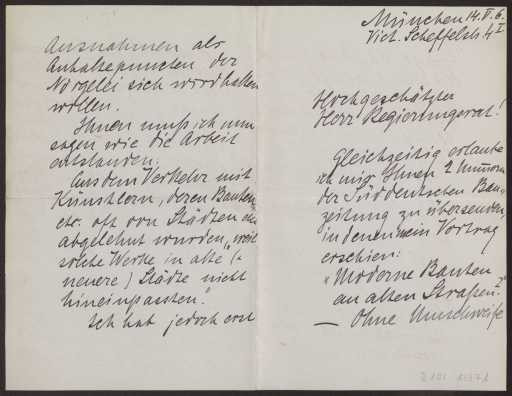 München 14. V. 6.
Vict. Scheffelstr. 4 I
Hochgeschätzter
Herr Regierungsrat!
Gleichzeitig erlaube
ich mir Ihnen 2 Nummern
der Süddeutschen Bau-
zeitung zu übersenden,
in denen mein Vortrag
erschien:
"Moderne Bauten
an alten Straßen."
— Ohne Umschweife
Ausnahmen als
Anhaltepuncten der
Nörgelei sich
wollen.
Ihnen muß ich nun
sagen wie die Arbeit
entstanden:
Aus dem Verkehr mit
Künstlern, deren Bauten
etc. oft von Städten
abgelehnt wurden, "weil
solche Werke in alte (&
neuere) Städte nicht
hineinpassten."
Ich hab jedoch erst